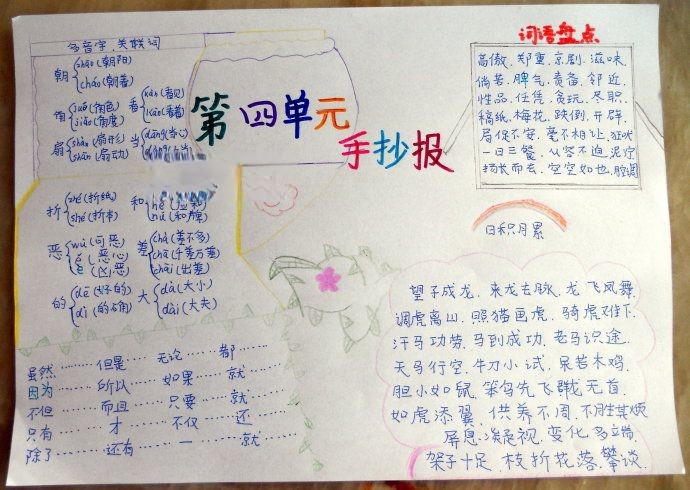 多音字、关联词
朝 zhāo (朝阳)
cháo (朝着)
角 jué (角色)
jiǎo (角度)
看 kàn (看见)
kān (看着)
扇 shàn (扇形)
shān (扇动)
当 dāng (当心)
折 zhé (折纸)
shé (折本)
和
hú (和牌)
恶 wù (可恶)
ě (恶心)
è (凶恶)
差 chà (差不多)
chā (千差万差)
chāi (出差)
的 dē (好的)
dì (的确)
大 dà (大小)
dài (大夫)
虽然……但是…… 无论……都……
因为……所以…… 如果……就……
不但……而且…… 只要……就……
只有……才…… 不仅……还……
除了……还有…… 一……就……
第四单元
手抄报
词语盘点
高傲、郑重、京剧、滋味、
倘若、脾气、责备、邻近、
性品、任凭、贪玩、尽职、
稿纸、梅花、跌倒、开辟、
局促不安、毫不相让、狂吠
一日三餐、从容不迫、泥泞
扬长而去、空空如也、腔调
日积月累
望子成龙、来龙去脉、龙飞凤舞、
调虎离山、照猫画虎、骑虎难下、
汗马功劳、马到成功、老马识途、
天马行空、牛刀小试、呆若木鸡、
胆小如鼠、笨鸟先飞、群龙无首、
如虎添翼、供养不周、不胜其烦
屏息凝视、变化多端、
架子十足、枝折花落、攀谈、